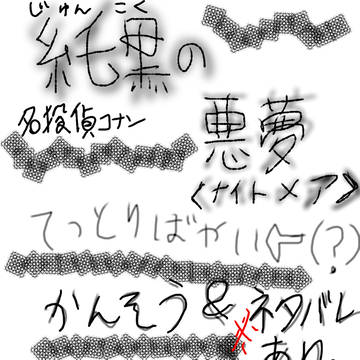 じゅんこく
純黒の
名探偵コナン
悪夢
<ナイトメア>
てっとりばやい⇦(?)
かんそう&ネタバレ
あり。